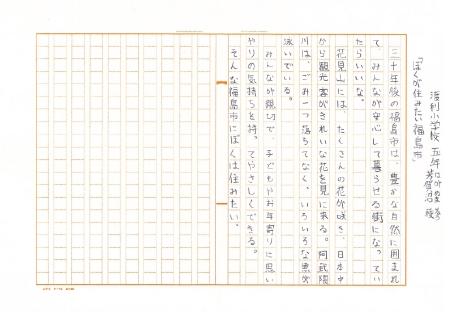 「ぼくが住みたい福島市」
小学校 五年
三十年後の福島市は、豊かな自然に囲まれ
て、みんなが安心して暮らせる街になってい
たらいいな。
花見山には、たくさんの花が咲き、日本中
から観光客がきれいな花を見に来る。阿武隈
川は、ごみ一つ落ちてなく、いろいろな魚が
泳いでいる。
みんなが親切で、子どもやお年寄りに思い
やりの気持ちを持ってやさしくできる。
そんな福島市にぼくは住みたい。